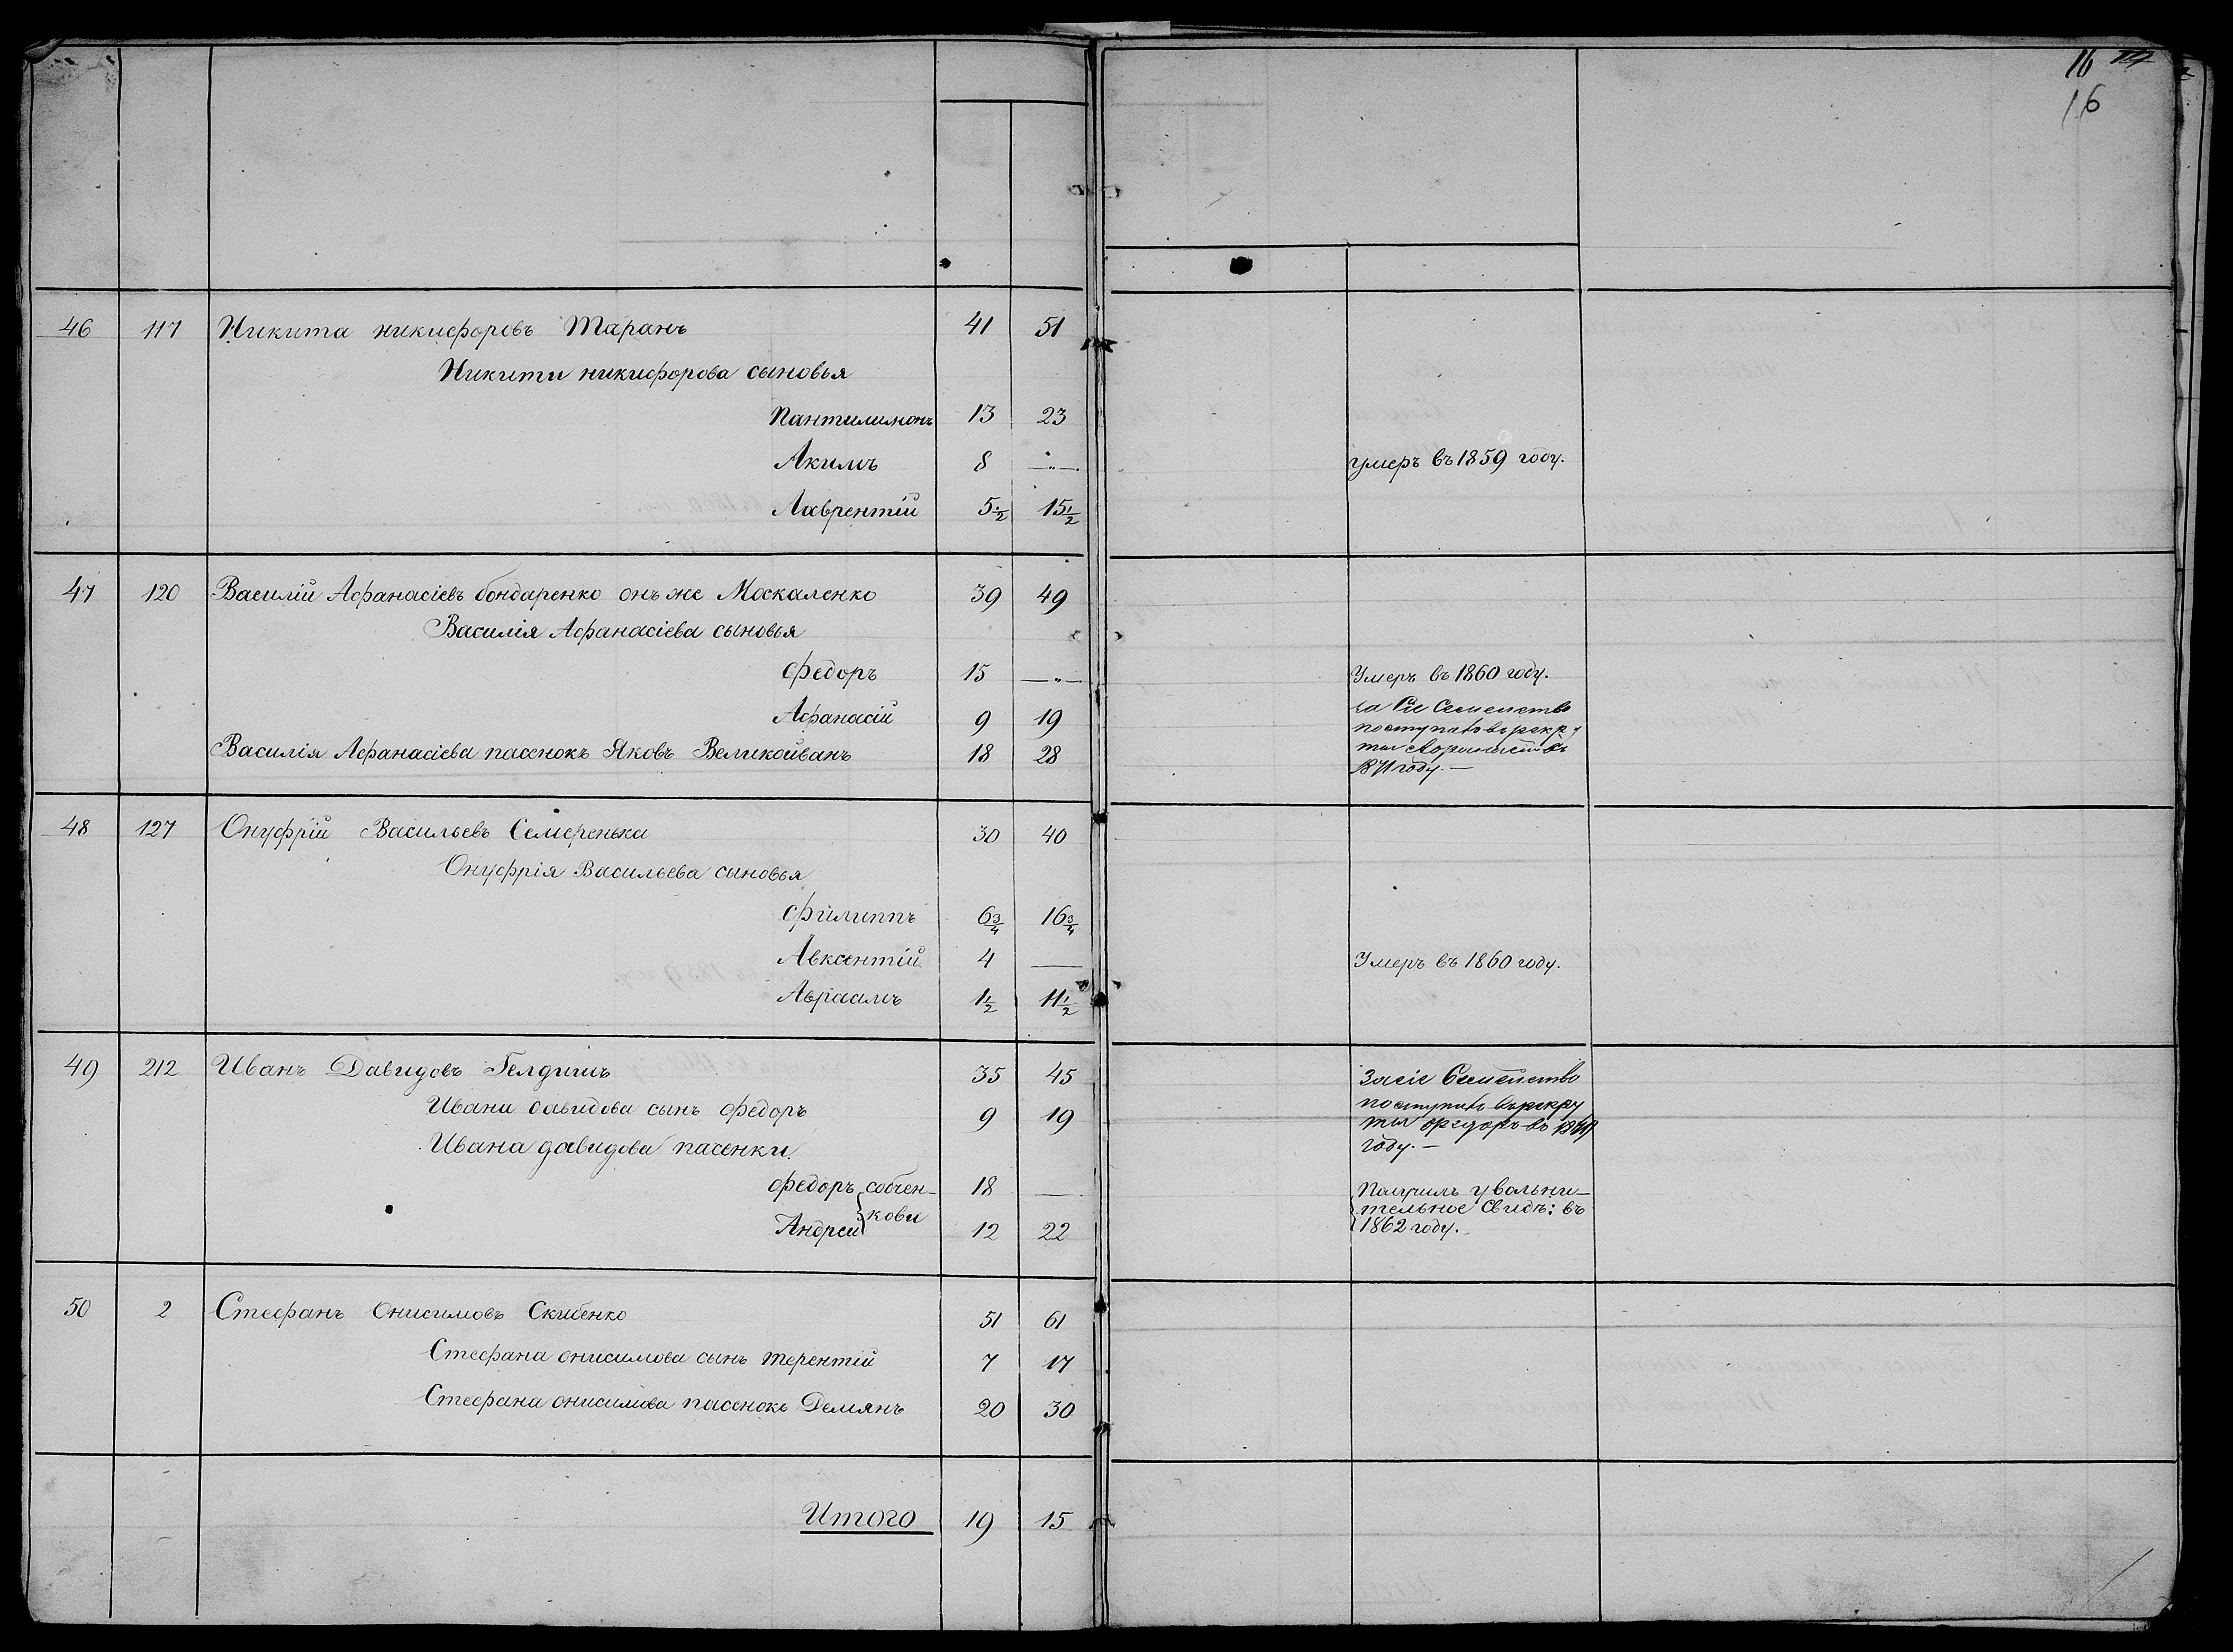 16
16
46 117 Никита никифоровъ Таранъ 41 51
Никити никифорова сыновья
Пантилимонъ 13 23
Акимъ 8 —„— умеръ въ 1859 году.
Лаврентій 5½ 15½
47 120 Василій Афанасіевъ бондаренко онъ же Москаленко 39 49
Василія Афанасіева сыновья
Федоръ 15 —„— Умеръ въ 1860 году.
Афанасій 9 19 Семейство
поступилъ въ рекру
Василія Афанасіева пасенокъ Яковъ Великойванъ 18 28 ты
1871 году. —
48 127 Онуфрій Васильевъ Семеренька 30 40
Онуфрія Васильева сыновья
Филиппъ 6¾ 16¾
Авксентій 4 — Умеръ въ 1860 году.
Авраамъ 1½ 11½
49 212 Иванъ Давидовъ Гелдишъ 35 45 За сіе Семейство
Ивана давидова сынъ Федоръ 9 19 поступилъ въ рекру
ты Федоръ въ
Ивана давидова пасенки. году. —
Федоръ собчен- 18 — Получилъ увольни-
кови тельное Свидъ: въ
Андрей 12 22 1862 году.
50 2 Стефанъ Онисимовъ Скибенко 51 61
Стефана онисимова сынъ терентій 7 17
Стефана онисимова пасенокъ Демянъ 20 30
Итого 19 15